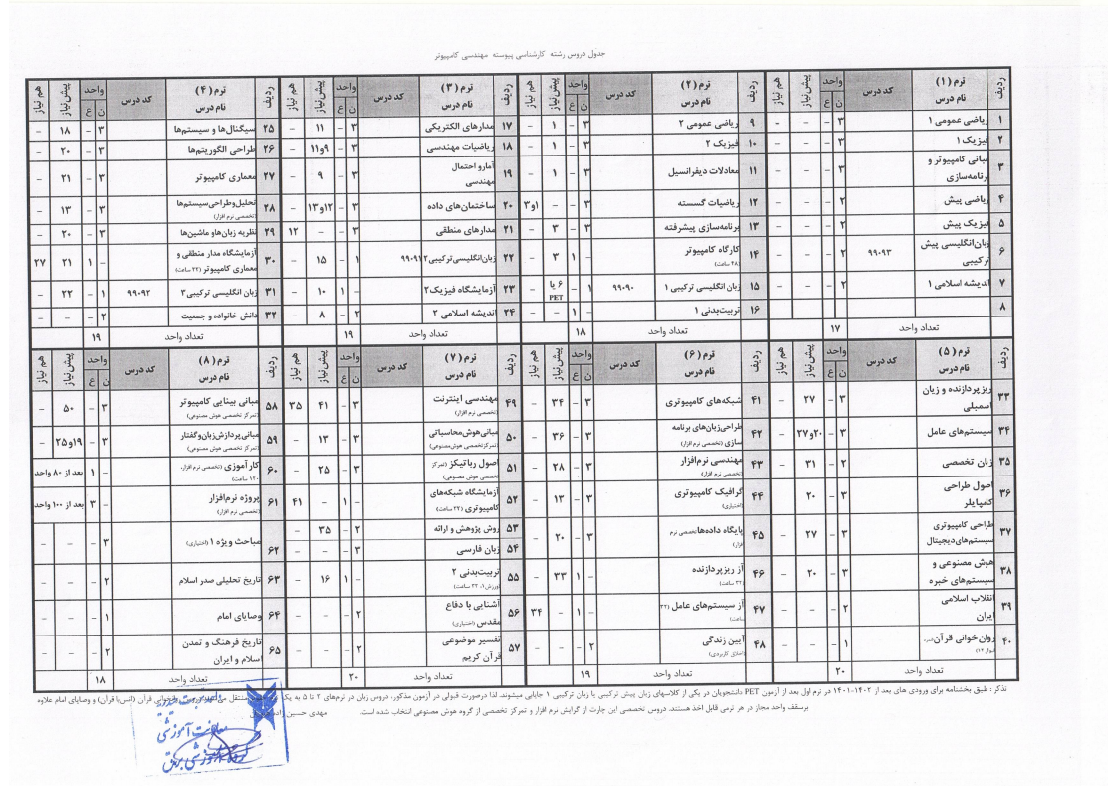 جدول دروس رشته کارشناسی پیوسته مهندسی کامپیوتر
ردیف | ترم (۱) نام درس | کد درس | واحد ن ع | پیش‌نیاز | هم نیاز
۱ | ریاضی عمومی ۱ | ۳ | - | - | -
۲ | فیزیک ۱ | ۳ | - | - | -
۳ | مبانی کامپیوتر و برنامه‌سازی | ۳ | - | - | -
۴ | ریاضی پیش | ۲ | - | - | -
۵ | فیزیک پیش | ۲ | - | - | -
۶ | زبان‌انگلیسی پیش ترکیبی | ۹۹۰۹۳ | ۲ | - | - | -
۷ | اندیشه اسلامی ۱ | ۲ | - | - | -
۸
تعداد واحد ۱۷
ردیف | ترم (۲) نام درس | کد درس | واحد ن ع | پیش‌نیاز | هم نیاز
۹ | ریاضی عمومی ۲ | ۳ | - | ۱ | -
۱۰ | فیزیک ۲ | ۳ | - | ۱ | -
۱۱ | معادلات دیفرانسیل | ۳ | - | ۱ | -
۱۲ | ریاضیات گسسته | ۳ | - | - | ۱و۳
۱۳ | برنامه‌سازی پیشرفته | ۳ | - | ۳ | -
۱۴ | کارگاه کامپیوتر (۴۸ ساعت) | - | ۱ | ۳ | -
۱۵ | زبان انگلیسی ترکیبی ۱ | ۹۹۰۹۰ | ۱ | - | ۶ یا PET | -
۱۶ | تربیت‌بدنی ۱ | - | ۱ | - | -
تعداد واحد ۱۸
ردیف | ترم (۳) نام درس | کد درس | واحد ن ع | پیش‌نیاز | هم نیاز
۱۷ | مدارهای الکتریکی | ۳ | - | ۱۱ | -
۱۸ | ریاضیات مهندسی | ۳ | - | ۹و۱۱ | -
۱۹ | آمارو احتمال مهندسی | ۳ | - | ۹ | -
۲۰ | ساختمان‌های داده | ۳ | - | ۱۲و۱۳ | -
۲۱ | مدارهای منطقی | ۳ | - | - | ۱۲
۲۲ | زبان‌انگلیسی‌ترکیبی۲ | ۹۹۰۹۱ | ۱ | - | ۱۵ | -
۲۳ | آزمایشگاه فیزیک۲ | - | ۱ | ۱۰ | -
۲۴ | اندیشه اسلامی ۲ | ۲ | - | ۸ | -
تعداد واحد ۱۹
ردیف | ترم (۴) نام درس | کد درس | واحد ن ع | پیش‌نیاز | هم نیاز
۲۵ | سیگنال‌ها و سیستم‌ها | ۳ | - | ۱۸ | -
۲۶ | طراحی الگوریتم‌ها | ۳ | - | ۲۰ | -
۲۷ | معماری کامپیوتر | ۳ | - | ۲۱ | -
۲۸ | تحلیل‌وطراحی‌سیستم‌ها (تخصصی نرم افزار) | ۳ | - | ۱۳ | -
۲۹ | نظریه زبان‌هاو ماشین‌ها | ۳ | - | ۲۰ | -
۳۰ | آزمایشگاه مدار منطقی و معماری کامپیوتر (۳۲ ساعت) | - | ۱ | ۲۱ | ۲۷
۳۱ | زبان انگلیسی ترکیبی۳ | ۹۹۰۹۲ | ۱ | - | ۲۲ | -
۳۲ | دانش خانواده و جمعیت | ۲ | - | - | -
تعداد واحد ۱۹
ردیف | ترم (۵) نام درس | کد درس | واحد ن ع | پیش‌نیاز | هم نیاز
۳۳ | ریزپردازنده و زبان اسمبلی | ۳ | - | ۲۷ | -
۳۴ | سیستم‌های عامل | ۳ | - | ۲۰و۲۷ | -
۳۵ | زبان تخصصی | ۲ | - | ۳۱ | -
۳۶ | اصول طراحی کمپایلر | ۳ | - | ۲۰ | -
۳۷ | طراحی کامپیوتری سیستم‌های‌دیجیتال | ۳ | - | ۲۷ | -
۳۸ | هوش مصنوعی و سیستم‌های خبره | ۳ | - | ۲۰ | -
۳۹ | انقلاب اسلامی ایران | ۲ | - | - | -
۴۰ | روان‌خوانی قرآن | ۱ | - | - | -
تعداد واحد ۲۰
ردیف | ترم (۶) نام درس | کد درس | واحد ن ع | پیش‌نیاز | هم نیاز
۴۱ | شبکه‌های کامپیوتری | ۳ | - | ۳۴ | -
۴۲ | طراحی‌زبان‌های برنامه سازی (تخصصی نرم افزار) | ۳ | - | ۳۶ | -
۴۳ | مهندسی نرم‌افزار (تخصصی نرم افزار) | ۳ | - | ۲۸ | -
۴۴ | گرافیک کامپیوتری (اختیاری) | ۳ | - | ۱۳ | -
۴۵ | پایگاه داده‌ها(تخصصی نرم افزار) | ۳ | - | ۲۰ | -
۴۶ | آز ریزپردازنده (۳۲ ساعت) | - | ۱ | ۳۳ | -
۴۷ | آز سیستم‌های عامل (۳۲ ساعت) | - | ۱ | - | ۳۴
۴۸ | آیین زندگی (اخلاق کاربردی) | ۲ | - | - | -
تعداد واحد ۱۹
ردیف | ترم (۷) نام درس | کد درس | واحد ن ع | پیش‌نیاز | هم نیاز
۴۹ | مهندسی اینترنت (تخصصی نرم افزار) | ۳ | - | ۴۱ | ۳۵
۵۰ | مبانی‌هوش‌محاسباتی (تمرکزتخصصی هوش‌مصنوعی) | ۳ | - | ۱۳ | -
۵۱ | اصول رباتیکز (تمرکز تخصصی هوش مصنوعی) | ۳ | - | ۲۵ | -
۵۲ | آزمایشگاه شبکه‌های کامپیوتری (۳۲ ساعت) | - | ۱ | - | ۴۱
۵۳ | روش پژوهش و ارائه | ۲ | - | ۳۵ | -
۵۴ | زبان فارسی | ۳ | - | - | -
۵۵ | تربیت‌بدنی ۲ (ورزش۱، ۳۲ ساعت) | - | ۱ | ۱۶ | -
۵۶ | آشنایی با دفاع مقدس (اختیاری) | ۲ | - | - | -
۵۷ | تفسیر موضوعی قرآن کریم | ۲ | - | - | -
تعداد واحد ۲۰
ردیف | ترم (۸) نام درس | کد درس | واحد ن ع | پیش‌نیاز | هم نیاز
۵۸ | مبانی بینایی کامپیوتر (تمرکز تخصصی هوش مصنوعی) | ۳ | - | ۵۰ | -
۵۹ | مبانی‌پردازش‌زبان‌وگفتار (تمرکزتخصصی هوش‌مصنوعی) | ۳ | - | ۱۹و۲۵ | -
۶۰ | کارآموزی (تخصصی نرم افزار، ۱۲۰ ساعت) | - | ۱ | بعد از ۸۰ واحد
۶۱ | پروژه نرم‌افزار (تخصصی نرم افزار) | - | ۳ | بعد از ۱۰۰ واحد
۶۲ | مباحث ویژه ۱ (اختیاری) | ۳ | - | - | -
۶۳ | تاریخ تحلیلی صدر اسلام | ۲ | - | - | -
۶۴ | وصایای امام | ۱ | - | - | -
۶۵ | تاریخ فرهنگ و تمدن اسلام و ایران | ۲ | - | - | -
تعداد واحد ۱۸
تذکر : طبق بخشنامه برای ورودی های بعد از ۱۴۰۲-۱۴۰۱ در ترم اول بعد از آزمون PET دانشجویان در یکی از کلاسهای زبان پیش ترکیبی یا زبان ترکیبی ۱ جایابی میشوند. لذا درصورت قبولی در آزمون مذکور، دروس زبان در ترم‌های ۲ تا ۵ به یک منتقل می قرآن (انس‌با قرآن) و وصایای امام علاوه
برسقف واحد مجاز در هر ترمی قابل اخذ هستند. دروس تخصصی این چارت از گرایش نرم افزار و تمرکز تخصصی از گروه هوش مصنوعی انتخاب شده است. مهدی حسین زاده
معاونت آموزشی
گروه آموزشی برق